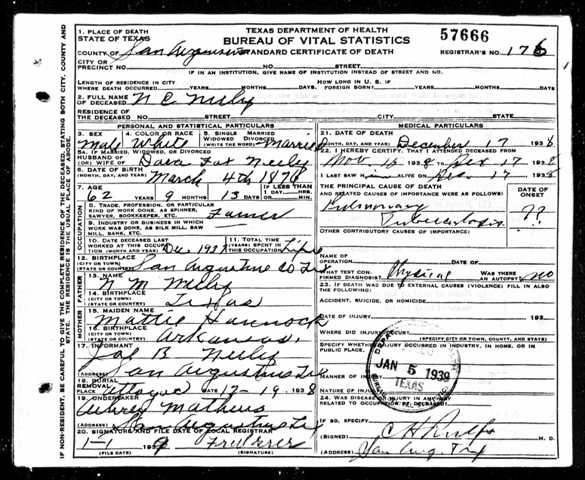 1. PLACE OF DEATH
STATE OF TEXAS
TEXAS DEPARTMENT OF HEALTH
BUREAU OF VITAL STATISTICS
STANDARD CERTIFICATE OF DEATH
57666
COUNTY OF San Augustine
REGISTRAR'S NO. 176
CITY OR PRECINCT NO. NO. STREET
IF IN AN INSTITUTION, GIVE NAME OF INSTITUTION INSTEAD OF STREET AND NO.
LENGTH OF RESIDENCE IN CITY WHERE DEATH OCCURRED YEARS MONTHS DAYS HOW LONG IN U. S. IF FOREIGN BORN? YEARS MONTHS DAYS
2. FULL NAME OF DECEASED N C Neely
RESIDENCE OF THE DECEASED NO. STREET CITY COUNTY STATE
PERSONAL AND STATISTICAL PARTICULARS
3. SEX Male
4. COLOR OR RACE White
5. SINGLE MARRIED WIDOWED DIVORCED (WRITE THE WORD) Married
5a. IF MARRIED, WIDOWED OR DIVORCED
HUSBAND OF (OR) WIFE OF Neely
6. DATE OF BIRTH (MONTH, DAY, AND YEAR) March 4th
7. AGE YEARS MONTHS DAYS IF LESS THAN 1 DAY, HRS. MIN.
62 9 13
OCCUPATION
8. TRADE, PROFESSION, OR PARTICULAR KIND OF WORK DONE, AS SPINNER, SAWYER, BOOKKEEPER, ETC. Farmer
9. INDUSTRY OR BUSINESS IN WHICH WORK WAS DONE, AS SILK MILL, SAW MILL, BANK, ETC.
10. DATE DECEASED LAST WORKED AT THIS OCCUPATION Dec. 193
11. TOTAL YEARS SPENT IN THIS OCCUPATION Life
12. BIRTHPLACE (CITY OR TOWN) (STATE OR COUNTRY) San Augustine Co
FATHER
13. NAME N M Neely
14. BIRTHPLACE (CITY OR TOWN) (STATE OR COUNTRY) Texas
MOTHER
15. MAIDEN NAME Mattie
16. BIRTHPLACE (CITY OR TOWN) (STATE OR COUNTRY) Arkansas
17. INFORMANT Neely
(ADDRESS) San Augustine
18. BURIAL REMOVAL PLACE DATE 12-19 1938
19. UNDERTAKER Mathews
(ADDRESS) San Augustine
20. SIGNATURE AND FILE DATE OF LOCAL REGISTRAR
1-1 1939
(FILE DATE) (REGISTRAR)
MEDICAL PARTICULARS
21. DATE OF DEATH December 17 1938
22. I HEREBY CERTIFY THAT I ATTENDED DECEASED FROM
Nov. 1938 TO Dec 17 1938
I LAST SAW H ALIVE ON Dec 17 1938
THE PRINCIPAL CAUSE OF DEATH AND RELATED CAUSES OF IMPORTANCE WERE AS FOLLOWS:
DATE OF ONSET
Pulmonary
Tuberculosis
??
OTHER CONTRIBUTORY CAUSES OF IMPORTANCE:
NAME OF OPERATION DATE OF
WHAT TEST CONFIRMED DIAGNOSIS? Physical WAS THERE AN AUTOPSY? no
23. IF DEATH WAS DUE TO EXTERNAL CAUSES (VIOLENCE) FILL IN ALSO THE FOLLOWING:
ACCIDENT, SUICIDE, OR HOMICIDE
DATE OF INJURY 193
WHERE DID INJURY OCCUR?
(SPECIFY CITY OR TOWN, COUNTY, AND STATE)
SPECIFY WHETHER INJURY OCCURRED IN INDUSTRY, IN HOME, OR IN PUBLIC PLACE.
MANNER OF INJURY
NATURE OF INJURY
24. WAS DISEASE OR INJURY IN ANY WAY RELATED TO OCCUPATION OF DECEASED?
IF SO, SPECIFY
(SIGNED) M. D.
(ADDRESS) San Aug. Tex
JAN 5 1939
TEXAS